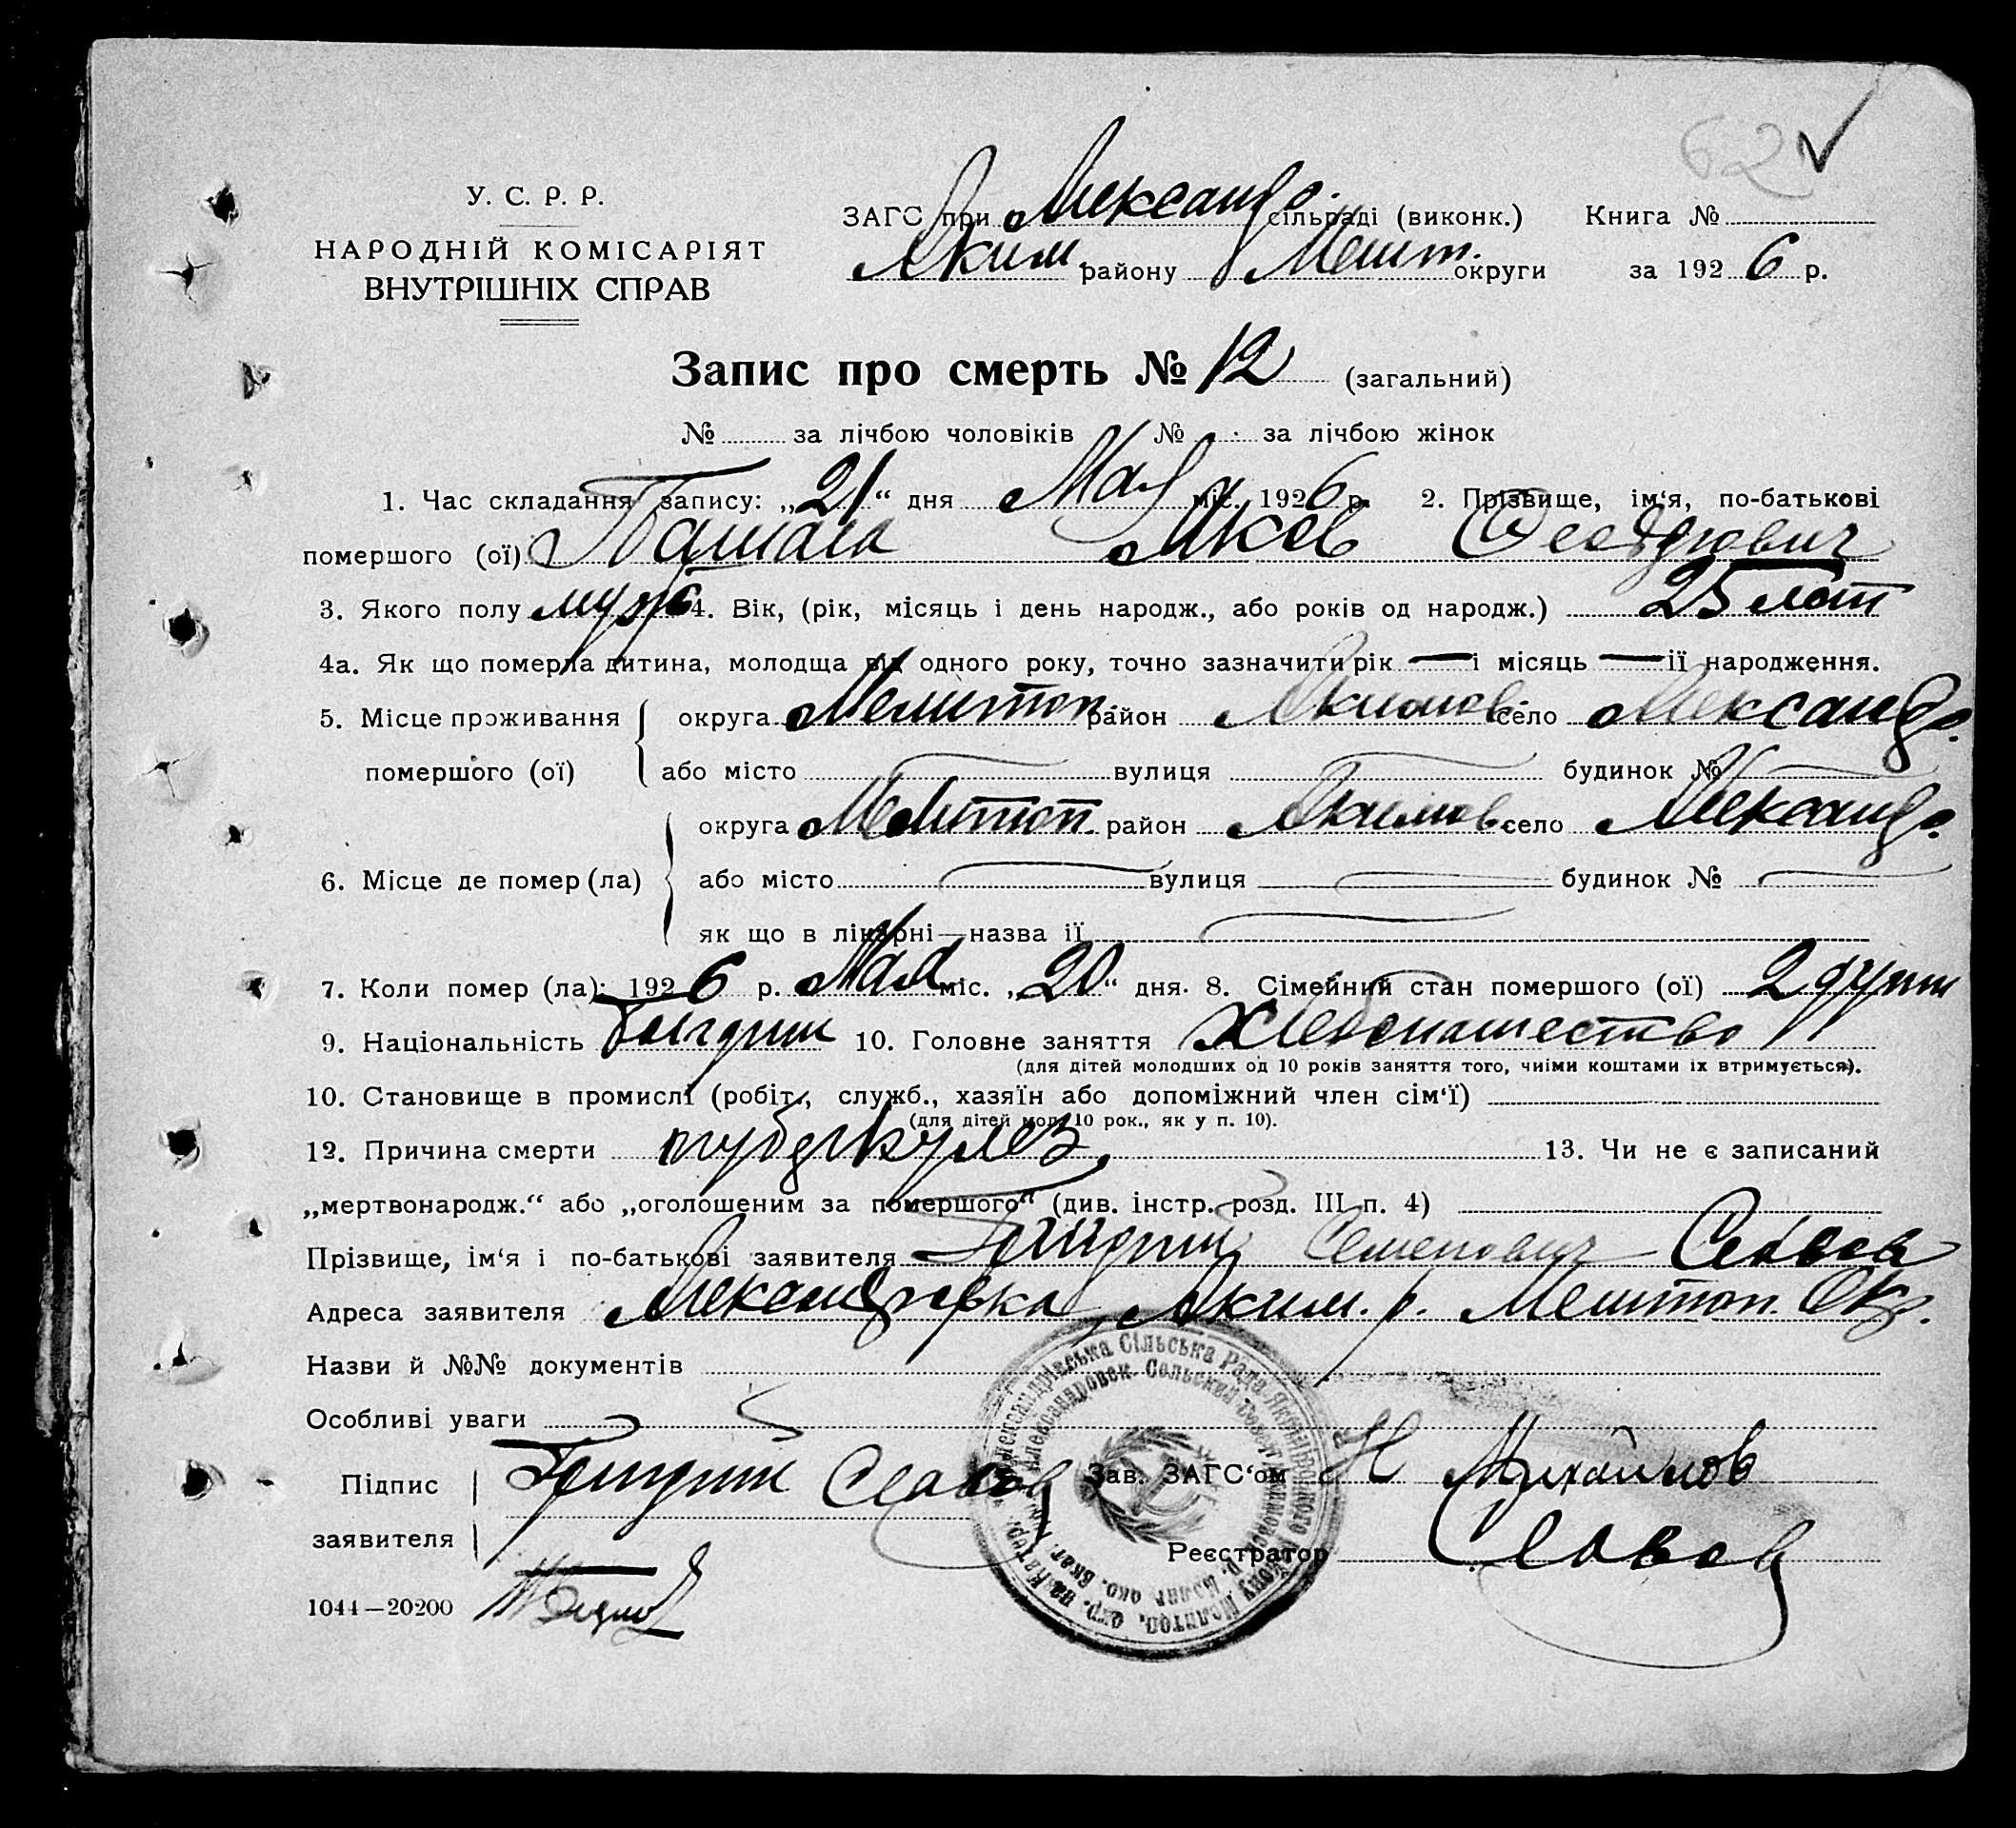 62 ✓
У. С. Р. Р.
НАРОДНІЙ КОМІСАРІЯТ
ВНУТРІШНІХ СПРАВ
ЗАГС при Александр. сільраді (виконк.) Книга №
Аким. району Мелит. округи за 1926 р.
Запис про смерть № 12 (загальний)
№ за лічбою чоловіків № за лічбою жінок
1. Час складання запису: „21“ дня Мая міс. 1926 р. 2. Прізвище, ім‘я, по-батькові
помершого (ої) Яков Феодорович
3. Якого полу муж 4. Вік, (рік, місяць і день народж., або років од народж.) 25 лет
4а. Як що померла дитина, молодща від одного року, точно зазначити рік — і місяць — ії народження.
5. Місце проживання округа Мелитоп. район Акимов. село Александр.
помершого (ої) або місто вулиця будинок №
округа Мелитоп. район Акимов. село Александр.
6. Місце де помер (ла) або місто вулиця будинок №
як що в лікарні—назва ії
7. Коли помер (ла): 1926 р. Мая міс. „20“ дня. 8. Сімейний стан помершого (ої) 2 души
9. Національність 10. Головне заняття Хлебопашество
(для дітей молодших од 10 років заняття того, чиіми коштами іх втримується).
10. Становище в промислі (робіт., служб., хазяїн або допоміжний член сім‘ї)
(для дітей мол. 10 рок., як у п. 10).
12. Причина смерти туберкулез, 13. Чи не є записаний
„мертвонародж.“ або „оголошеним за помершого“ (див. інстр. розд. III п. 4)
Прізвище, ім‘я і по-батькові заявителя Семенович
Адреса заявителя Александровка, Аким. р. Мелитоп. Окр.
Назви й №№ документів
Особливі уваги
Підпис
заявителя
Зав. ЗАГС‘ом Н Михайлов
Реєстратор
1044—20200